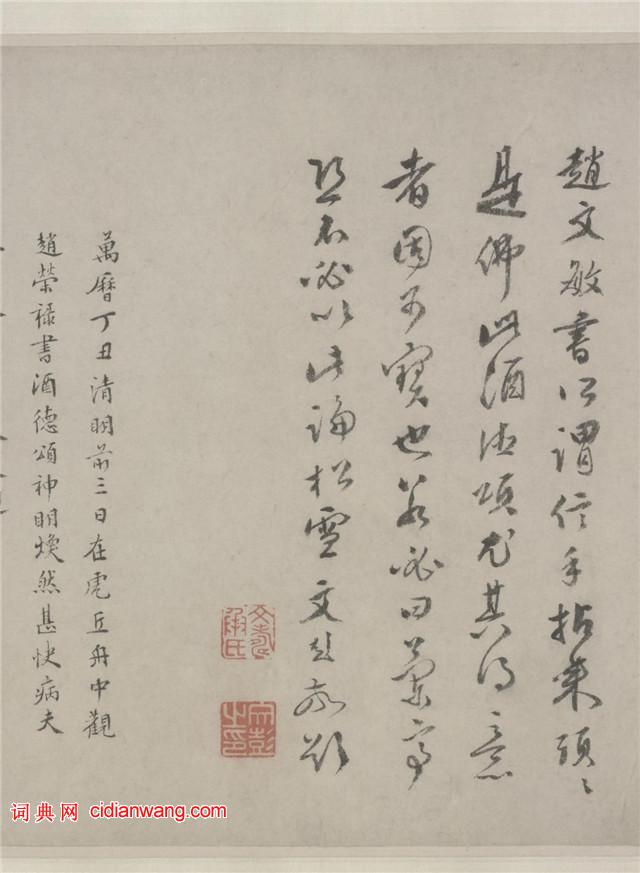 趙文敏書所謂信手拈來頭〻
是佛此酒德頌尤其得意
者固可寶也若必曰蘭亭
恐不必以此論松雪文彭敬題
文壽承氏
文彭之印
萬曆丁丑清明前三日在虎丘舟中觀
趙榮祿書酒德頌神明煥然甚快病夫
词典网 cidianwang.com